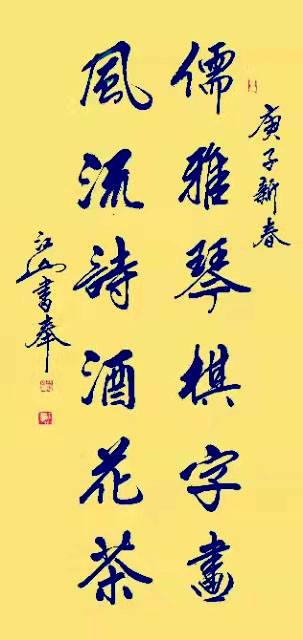 庚子新春
儒雅琴棋字畫
風流詩酒花茶
江山書奉